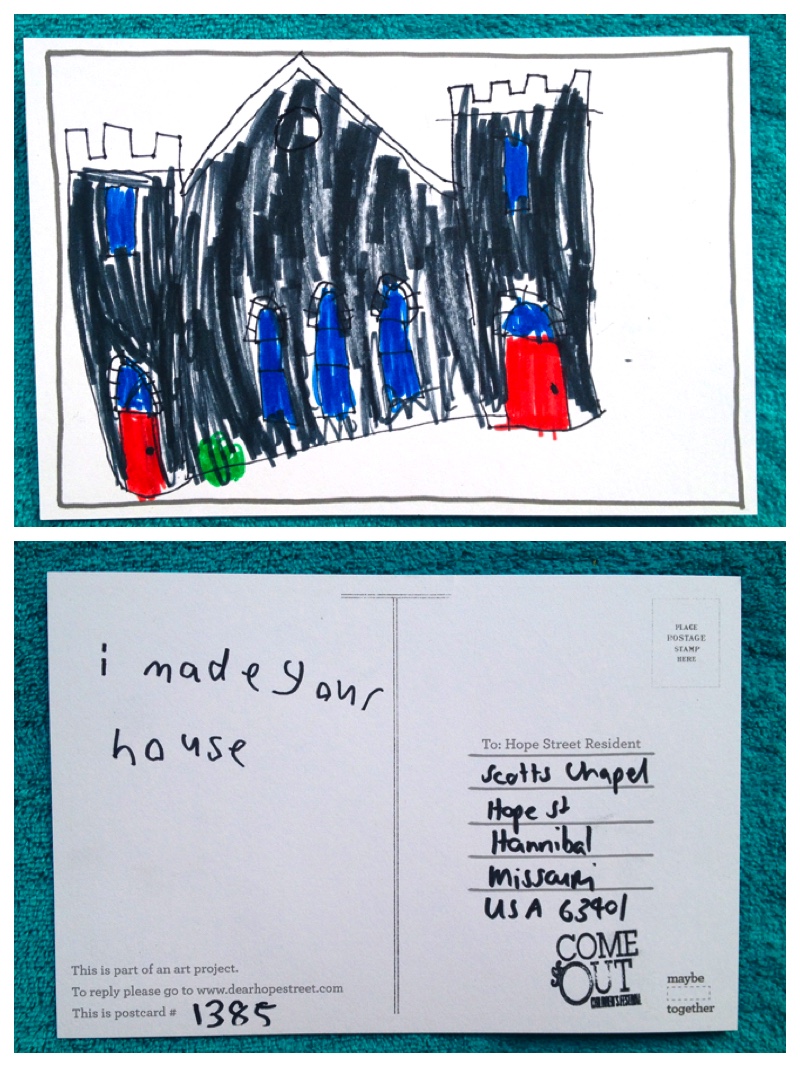 i made your
house
PLACE
POSTAGE
STAMP
HERE
To: Hope Street Resident
Scotts Chapel
Hope st
Hannibal
Missouri
USA 63401
COME
OUT
CHILDREN'S FESTIVAL
This is part of an art project.
To reply please go to www.dearhopestreet.com
This is postcard # 1385
maybe
together